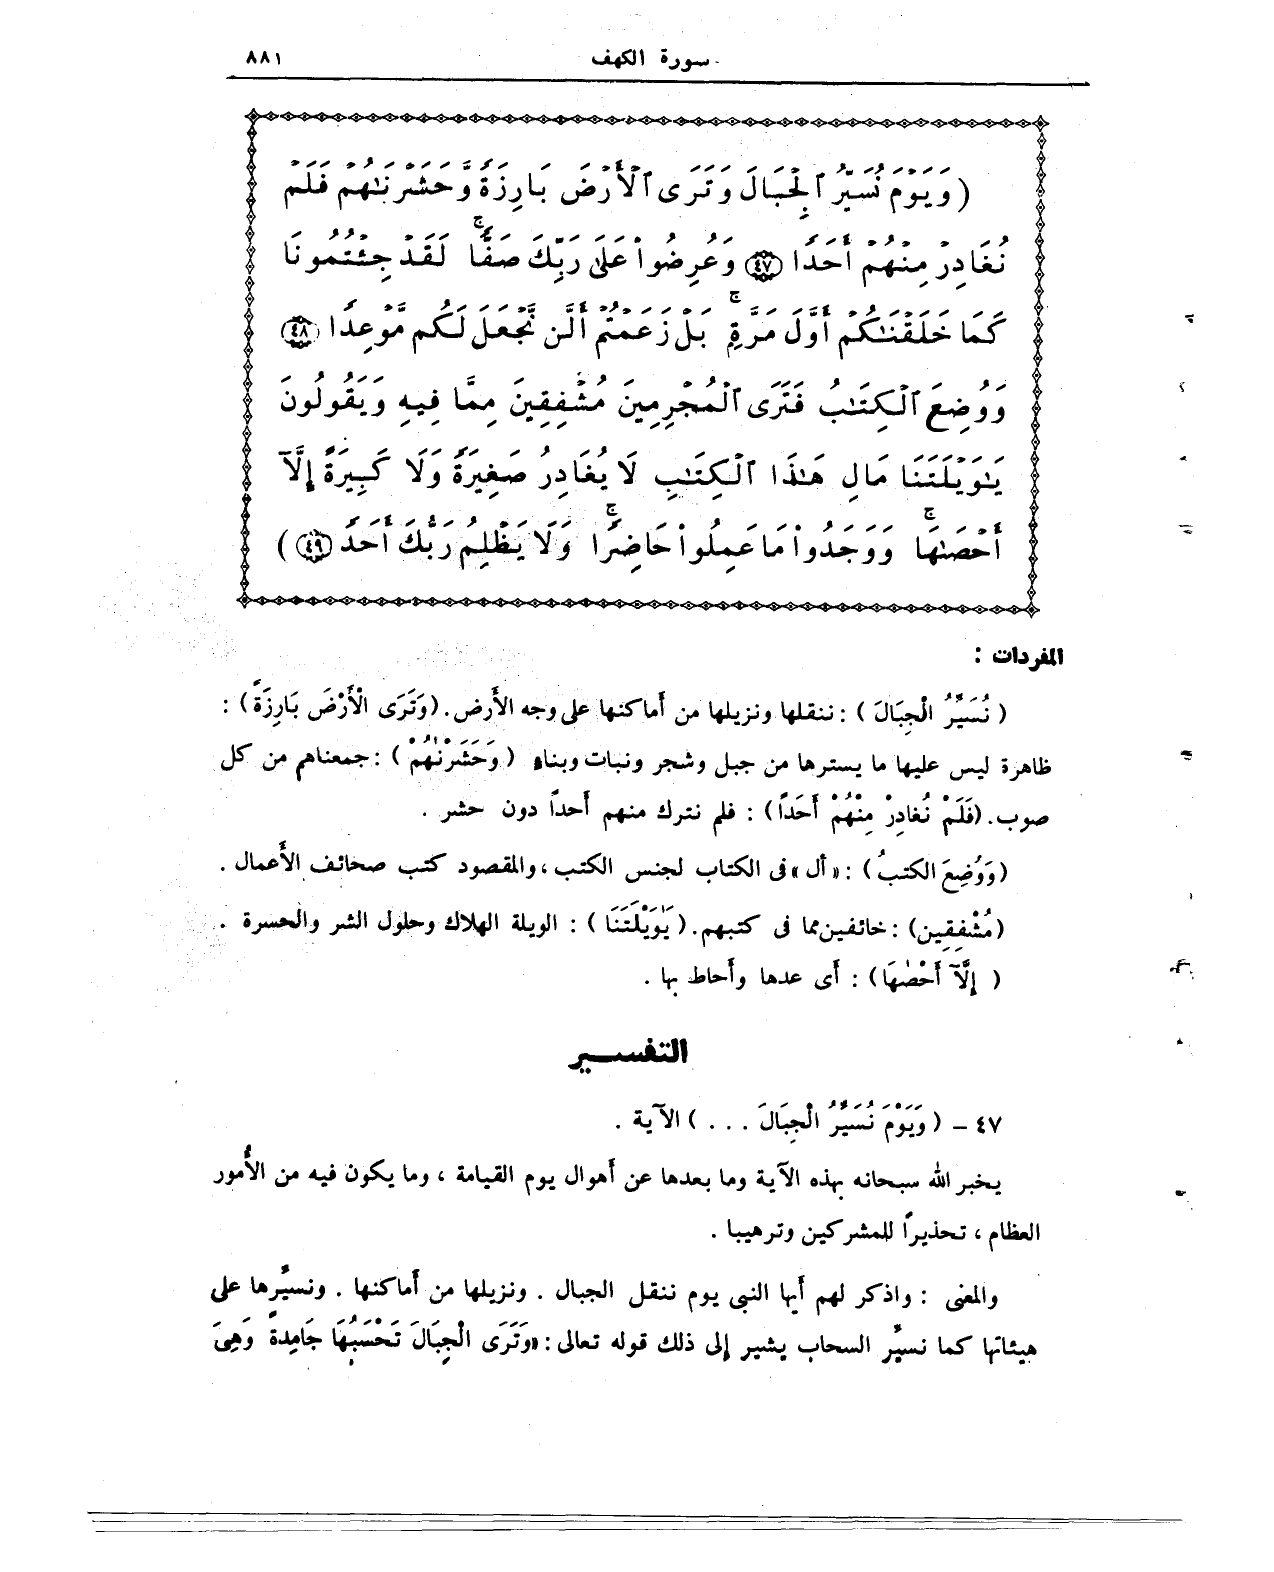 سورة الكهف ٨٨١
( وَيَوْمَ نُسَيِّرُ ٱلْجِبَالَ وَتَرَى ٱلْأَرْضَ بَارِزَةً وَحَشَرْنَٰهُمْ فَلَمْ
نُغَادِرْ مِنْهُمْ أَحَدًا ﴿٤٧﴾ وَعُرِضُوا۟ عَلَىٰ رَبِّكَ صَفًّا ۚ لَقَدْ جِئْتُمُونَا
كَمَا خَلَقْنَٰكُمْ أَوَّلَ مَرَّةٍ ۚ بَلْ زَعَمْتُمْ أَلَّن نَّجْعَلَ لَكُم مَّوْعِدًا ﴿٤٨﴾
وَوُضِعَ ٱلْكِتَٰبُ فَتَرَى ٱلْمُجْرِمِينَ مُشْفِقِينَ مِمَّا فِيهِ وَيَقُولُونَ
يَٰوَيْلَتَنَا مَالِ هَٰذَا ٱلْكِتَٰبِ لَا يُغَادِرُ صَغِيرَةً وَلَا كَبِيرَةً إِلَّآ
أَحْصَىٰهَا ۚ وَوَجَدُوا۟ مَا عَمِلُوا۟ حَاضِرًا ۚ وَلَا يَظْلِمُ رَبُّكَ أَحَدًا ﴿٤٩﴾ )
المفردات :
( نُسَيِّرُ الْجِبَالَ ) : ننقلها ونزيلها من أماكنها على وجه الأرض. (وَتَرَى الْأَرْضَ بَارِزَةً ) :
ظاهرة ليس عليها ما يسترها من جبل وشجر ونبات وبناء ( وَحَشَرْنَٰهُمْ ) : جمعناهم من كل
صوب. (فَلَمْ نُغَادِرْ مِنْهُمْ أَحَدًا ) : فلم نترك منهم أحداً دون حشر .
( وَوُضِعَ الكتبُ ) : « أل » فى الكتاب لجنس الكتب ، والمقصود كتب صحائف الأعمال .
(مُشْفِقِين) : خائفين مما فى كتبهم. ( يَٰوَيْلَتَنَا ) : الويلة الهلاك وحلول الشر والحسرة .
( إِلَّآ أَحْصَٰهَا ) : أى عدها وأحاط بها .
التفسير
٤٧ - ( وَيَوْمَ نُسَيِّرُ الْجِبَالَ . . . ) الآية .
يخبر الله سبحانه بهذه الآية وما بعدها عن أهوال يوم القيامة ، وما يكون فيه من الأُمور
العظام ، تحذيراً للمشركين وترهيبا .
والمعنى : واذكر لهم أيها النبى يوم ننقل الجبال . ونزيلها من أماكنها . ونسيِّرها على
هيئاتها كما نسيِّر السحاب يشير إلى ذلك قوله تعالى : «وَتَرَى الْجِبَالَ تَحْسَبُهَا جَامِدَةً وَهِىَ